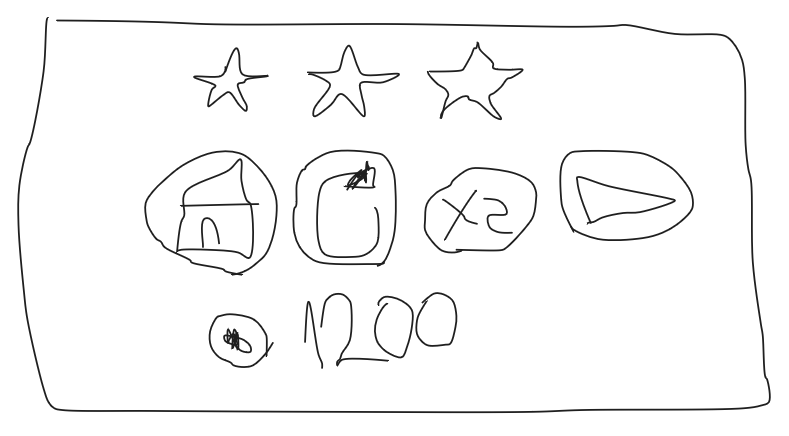 x2
1200